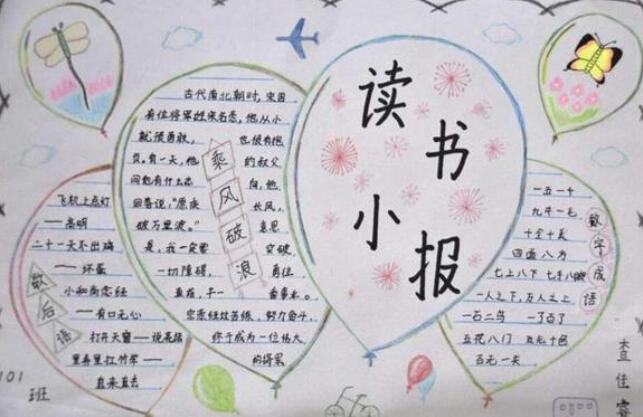 读书
小报
古代南北朝时,宋国
有位将军姓宗名悫,他从小
就很勇敢,也很有抱
负。有一天,他的叔父
问他有什么志向,他
回答说,“愿乘长风,
破万里浪。”意思
是,我一定要突破
一切障碍,勇往
直前,干一番事业。
宗悫经过苦练,努力奋斗,
终于成为一位伟大
的将军
乘风破浪
飞机上点灯
——高明
二十一天不出鸡
——坏蛋
小和尚念经
——有口无心
打开天窗——说亮话
里弄里扛竹竿——
直来直去
歇后语
一五一十
九牛一毛
四面八方
七上八下
一人之下,万人之上
一石二鸟 一了百了
五花八门 五光十色
数字成语
101
班
查佳